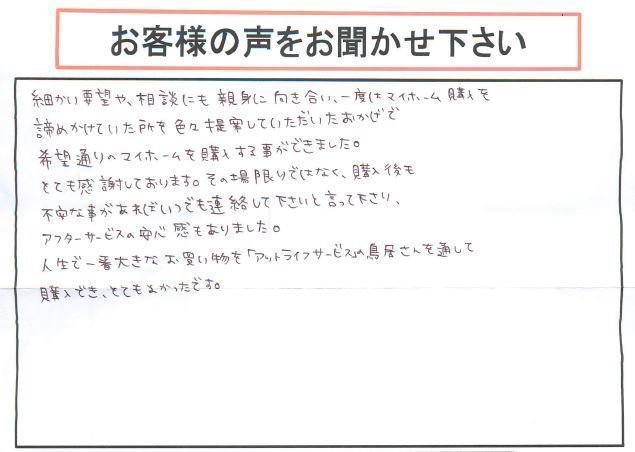 お客様の声をお聞かせ下さい
細かい要望や、相談にも親身に向き合い、一度はマイホーム購入を
諦めかけていた所を色々提案していただいたおかげで
希望通りのマイホームを購入する事ができました。
とても感謝しております。その場限りではなく、購入後も
不安な事があればいつでも連絡して下さいと言って下さり、
アフターサービスの安心感もありました。
人生で一番大きなお買い物を「アットライフサービス」の鳥居さんを通して
購入でき、とてもよかったです。